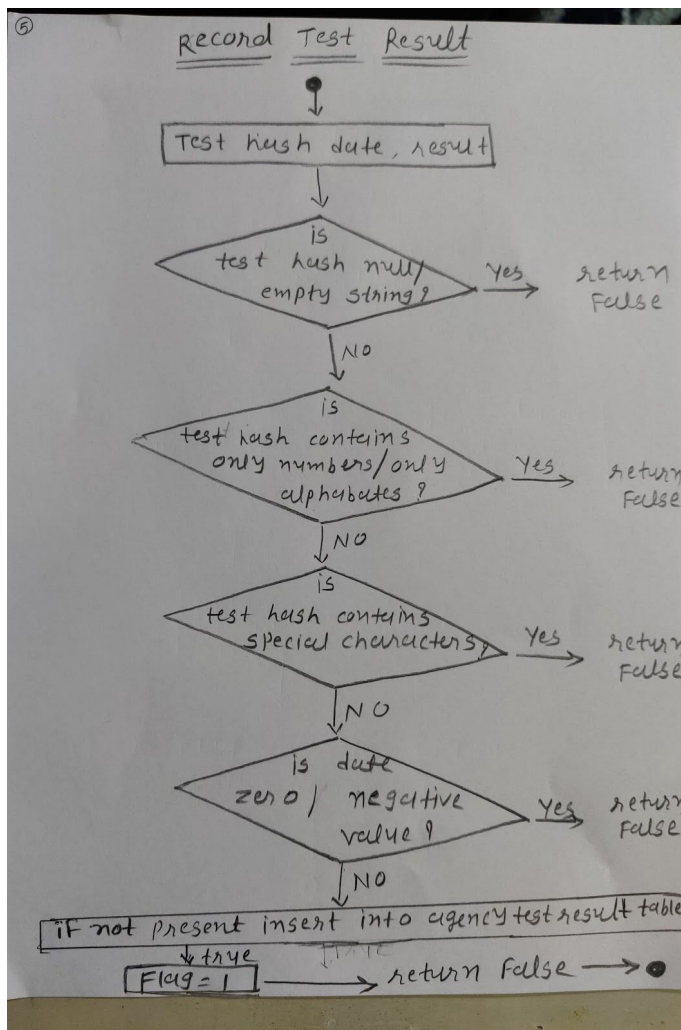 ⑤
Record Test Result
Test hash date, result
is
test hash null/
empty string?
Yes
return
False
NO
is
test hash contains
only numbers/only
alphabates?
Yes
return
False
NO
is
test hash contains
special characters?
Yes
return
False
NO
is date
zero/ negative
value?
Yes
return
False
NO
if not present insert into agency test result table
true
true
Flag = 1
return False